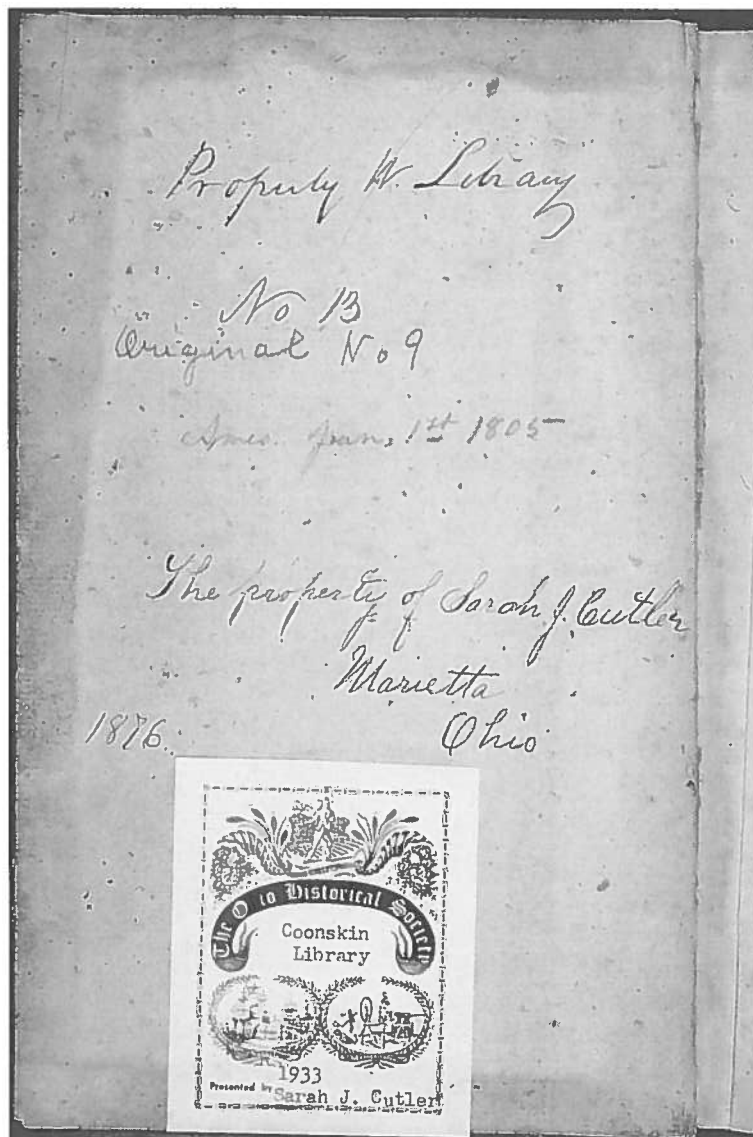 Property W. Library
No 13
Original No 9
Ames. Jan, 1st 1805
The property of Sarah J. Cutler
Marietta
1876.
Ohio
The O io Historical Society
Coonskin
Library
1933
Presented by Sarah J. Cutler